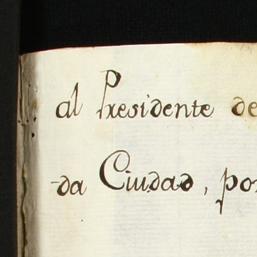 al Presidente de
da Ciudad, por